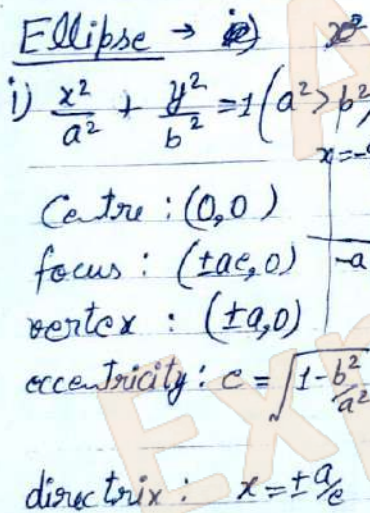 Ellipse →
i) x²/a² + y²/b² = 1 (a² > b²)
x = -a
Centre : (0,0)
focus : (±ae, 0) -a
vertex : (±a,0)
eccentricity : e = √(1 - b²/a²)
directrix : x = ± a/e